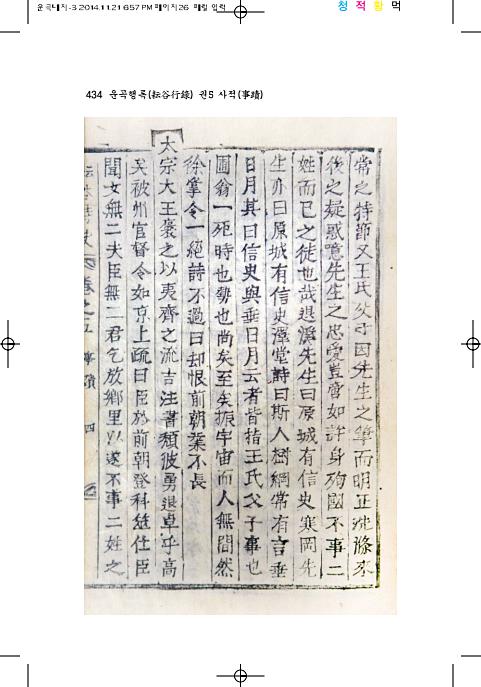 2014.11.21 6:57 PM 페이지26
청 적 황 먹
434 운곡행록(耘谷行錄) 권5 사적(事蹟)
常之特節又王氏父子因先生之筆而明正洗滌來
後之疑惑噫先生之忠愛豈啻如許身殉國不事二
姓而已之徒也哉退溪先生曰原城有信史寒岡先
生亦曰原城有信史澤堂詩曰斯人樹綱常有言垂
日月其曰信史與垂日月云者皆指王氏父子事也
圃翁一死時也勢也尚矣至矣振宇宙而人無間然
徐掌令一絶詩不過曰却恨前朝業不長
太宗大王褒之以夷齊之流吉注書頹波勇退卓乎高
矣被州官督令如京上疏曰臣於前朝登科筮仕臣
聞女無二夫臣無二君乞放鄉里以遂不事二姓之
卷之五 事蹟 四